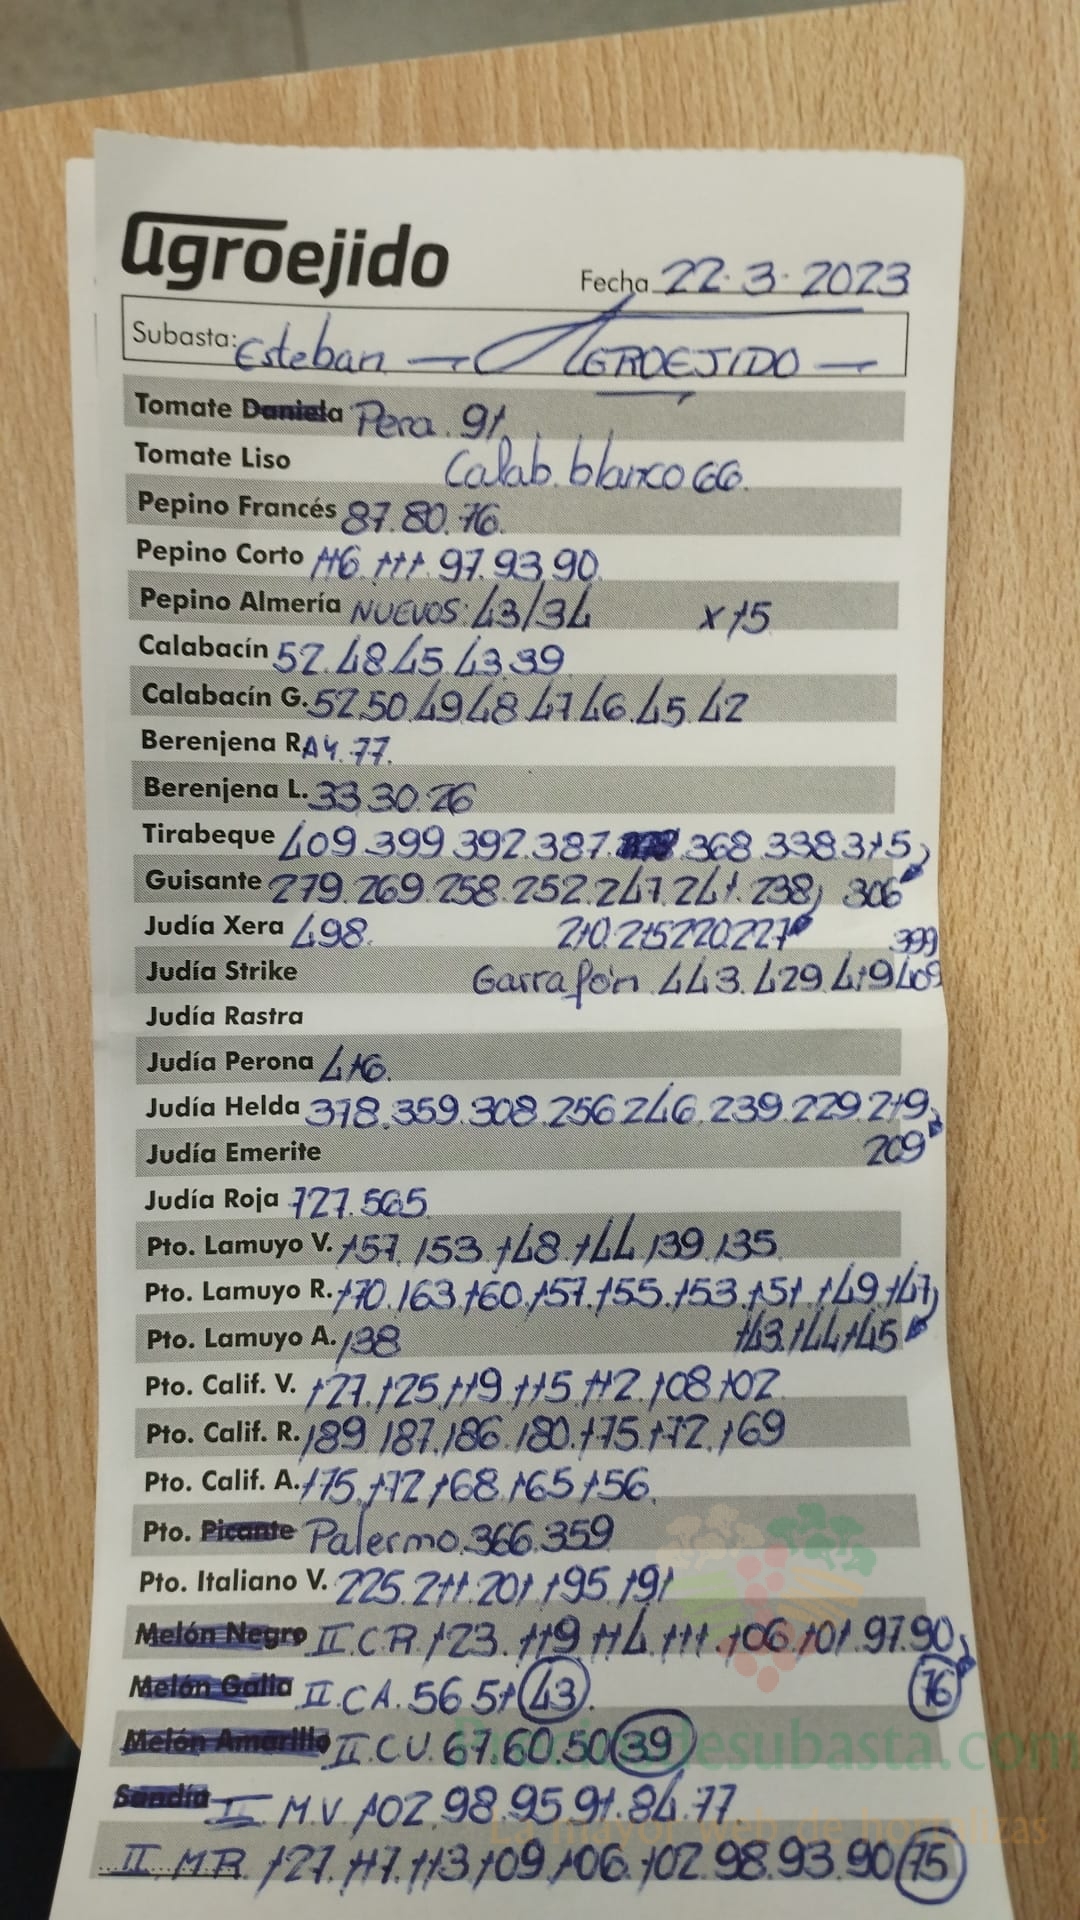 agroejido
Fecha 22.3.2023
Subasta: Esteban — AGROEJIDO —
Tomate Daniela Pera. 91
Tomate Liso Calab. blanco 66.
Pepino Francés 87.80.76.
Pepino Corto 116.111.97.93.90.
Pepino Almería NUEVOS: 43/34 x 15
Calabacín 52.48.45.43.39
Calabacín G. 52.50.49.48.47.46.45.42
Berenjena RAY. 77.
Berenjena L. 33.30.26
Tirabeque 409.399.392.387. 368.338.315,
Guisante 279.269.258.252.247.241.238, 306
Judía Xera 498. 210.215.220.227 399
Judía Strike Garrafón 443.429.419.409
Judía Rastra
Judía Perona 416.
Judía Helda 378.359.308.256.246.239.229.219,
Judía Emerite 209
Judía Roja 727.565
Pto. Lamuyo V. 157.153.148.144.139.135
Pto. Lamuyo R. 170.163.160.157.155.153.151.149.147,
Pto. Lamuyo A. 138 143.144.145
Pto. Calif. V. 127.125.119.115.112.108.102
Pto. Calif. R. 189.187.186.180.175.172.169
Pto. Calif. A. 175.172.168.165.156.
Pto. Picante Palermo.366.359
Pto. Italiano V. 225.211.201.195.191
Melón Negro II C.R. 123.119.114.111.106.101.97.90,
Melón Galia II.CA. 56.51 43. 76
Melón Amarillo II.CU. 67.60.50 39
Sandía II M.V. 102.98.95.91.84.77
II MR 127.117.113.109.106.102.98.93.90 75
Preciosdesubasta.com
La mayor web de hortalizas